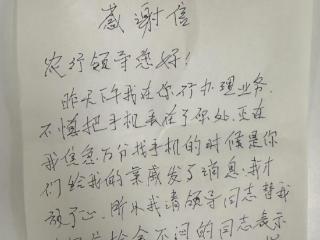 感谢信
农行领导您好！
昨天下午我在你行办理业务，
不慎把手机丢在了你处，正在
我焦急万分找手机的时候是你
们给我的亲戚发了消息，我才
放了心，所以我请领导同志替我
拾金不闻的同志表示